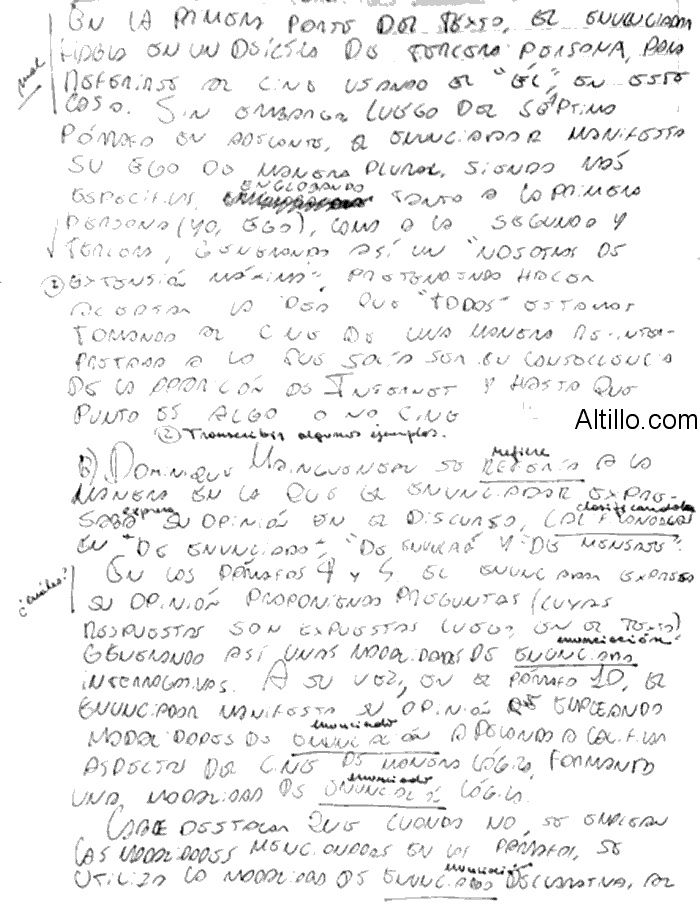 EN LA PRIMERA PARTE DEL TEXTO, EL ENUNCIADOR
HABLA EN UN DEÍCTICO DE TERCERA PERSONA, PARA
mal
REFERIRSE AL CINE USANDO EL "ÉL", EN ESTE
CASO. SIN EMBARGO LUEGO DEL SÉPTIMO
PÁRRAFO EN ADELANTE, EL ENUNCIADOR MANIFIESTA
SU EGO DE MANERA PLURAL, SIENDO MÁS
ESPECÍFICOS, ENGLOBANDO TANTO A LA PRIMERA
PERSONA (YO, EGO), COMO A LA SEGUNDA Y
TERCERA, GENERANDO ASÍ UN "NOSOTROS DE
② EXTENSIÓN MÁXIMA", PRETENDIENDO HACER
ACEPTAR LA IDEA QUE "TODOS" ESTAMOS
TOMANDO AL CINE DE UNA MANERA RE-INTER-
PRETADA A LO QUE SOLÍA SER EN CONSECUENCIA
DE LA APARICIÓN DE INTERNET Y HASTA QUE
PUNTO ES ALGO O NO CINE
Altillo.com
② Transcribir algunos ejemplos.
refiere
b) DOMINIQUE MAINGUENEAU SE REFERÍA A LA
MANERA EN LA QUE EL ENUNCIADOR EXPRE-
expresa clasificandolas
SABA SU OPINIÓN EN EL DISCURSO,
EN "DE ENUNCIADO", "DE ENUNCIACIÓN" Y "DE MENSAJE".
¿cuáles?
EN LOS PÁRRAFOS 4 Y 5, EL ENUNCIADOR EXPRESA
SU OPINIÓN PROPONIENDO PREGUNTAS (CUYAS
RESPUESTAS SON EXPUESTAS LUEGO, EN EL TEXTO)
enunciación
GENERANDO ASÍ UNAS MODALIDADES DE ENUNCIADO
INTERROGATIVAS. A SU VEZ, EN EL PÁRRAFO 10, EL
ENUNCIADOR MANIFIESTA SU OPINIÓN EMPLEANDO
enunciado
MODALIDADES DE ENUNCIACIÓN APELANDO A CALIFICAR
ASPECTOS DEL CINE DE MANERA LÓGICA, FORMANDO
enunciado
UNA MODALIDAD DE ENUNCIACIÓN LÓGICA.
CABE DESTACAR QUE CUANDO NO, SE EMPLEAN
LAS MODALIDADES MENCIONADAS EN LOS PÁRRAFOS, SE
enunciación
UTILIZA LA MODALIDAD DE ENUNCIADO DECLARATIVA, AL